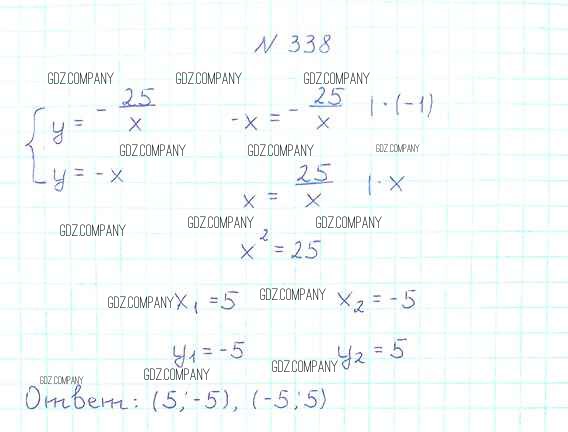 N 338
GDZ.COMPANY GDZ.COMPANY GDZ.COMPANY
{ y = - 25/x -x = - 25/x | · (-1)
GDZ.COMPANY GDZ.COMPANY GDZ.COMPANY
y = -x x = 25/x | · x
GDZ.COMPANY GDZ.COMPANY GDZ.COMPANY
x² = 25
GDZ.COMPANY x₁ = 5 GDZ.COMPANY x₂ = -5
y₁ = -5 y₂ = 5
GDZ.COMPANY GDZ.COMPANY GDZ.COMPANY
Ответ: (5; -5), (-5; 5)